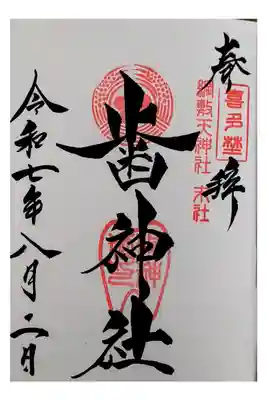 喜多埜
奉拝
綱敷天神社 末社
歯神社
令和七年八月二日